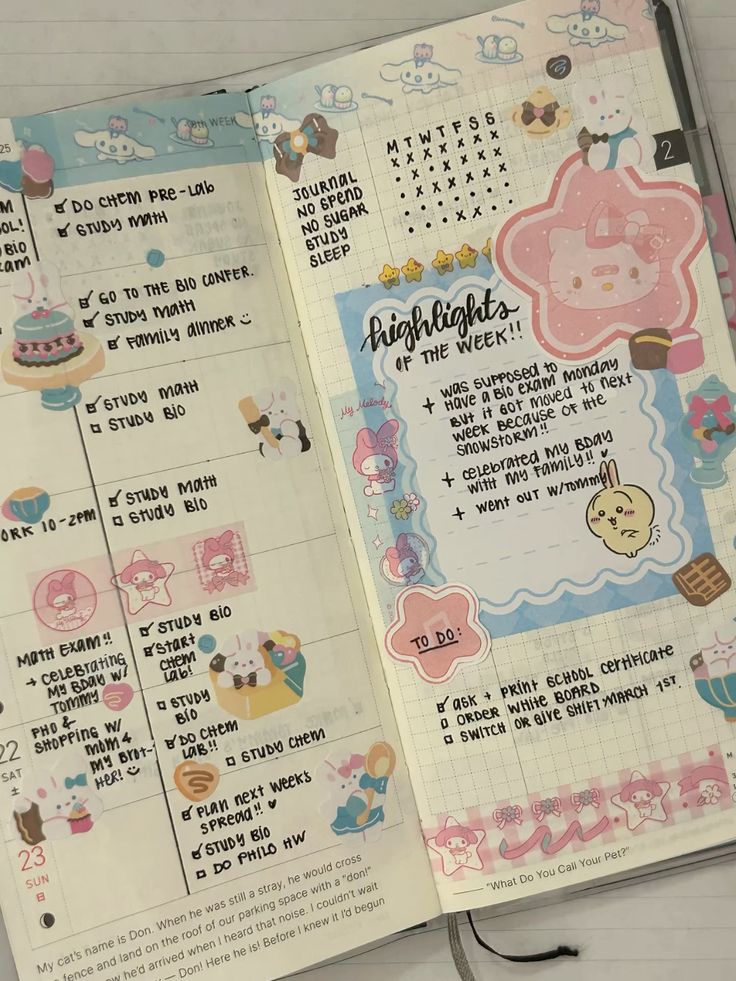 25
8th WEEK
DO CHEM PRE-LAB
STUDY MATH
BIO
GO TO THE BIO CONFER.
STUDY MATH
FAMILY DINNER
STUDY MATH
STUDY BIO
STUDY MATH
STUDY BIO
10-2PM
MATH EXAM!!
→ CELEBRATING
MY BDAY W/
TOMMY
STUDY BIO
START
CHEM
LAB!
22
SAT
土
PHO &
SHOPPING W/
MOM &
MY BROT-
HER!
STUDY
BIO
DO CHEM
LAB!!
STUDY CHEM
23
SUN
日
PLAN NEXT WEEK'S
SPREAD!! ♥
STUDY BIO
DO PHILO HW
My cat's name is Don. When he was still a stray, he would cross
fence and land on the roof of our parking space with a "don!"
how he'd arrived when I heard that noise. I couldn't wait
— Don! Here he is! Before I knew it I'd begun
M T W T F S S
JOURNAL
NO SPEND
NO SUGAR
STUDY
SLEEP
2
highlights
OF THE WEEK!!
+ WAS SUPPOSED TO
HAVE A BIO EXAM MONDAY
BUT IT GOT MOVED TO NEXT
WEEK BECAUSE OF THE
SNOWSTORM!!
+ CELEBRATED MY BDAY
WITH MY FAMILY!! ♥
+ WENT OUT W/TOMMY
My Melody
TO DO:
ASK + PRINT SCHOOL CERTIFICATE
ORDER WHITE BOARD
SWITCH OR GIVE SHIFT MARCH 1ST.
— "What Do You Call Your Pet?"